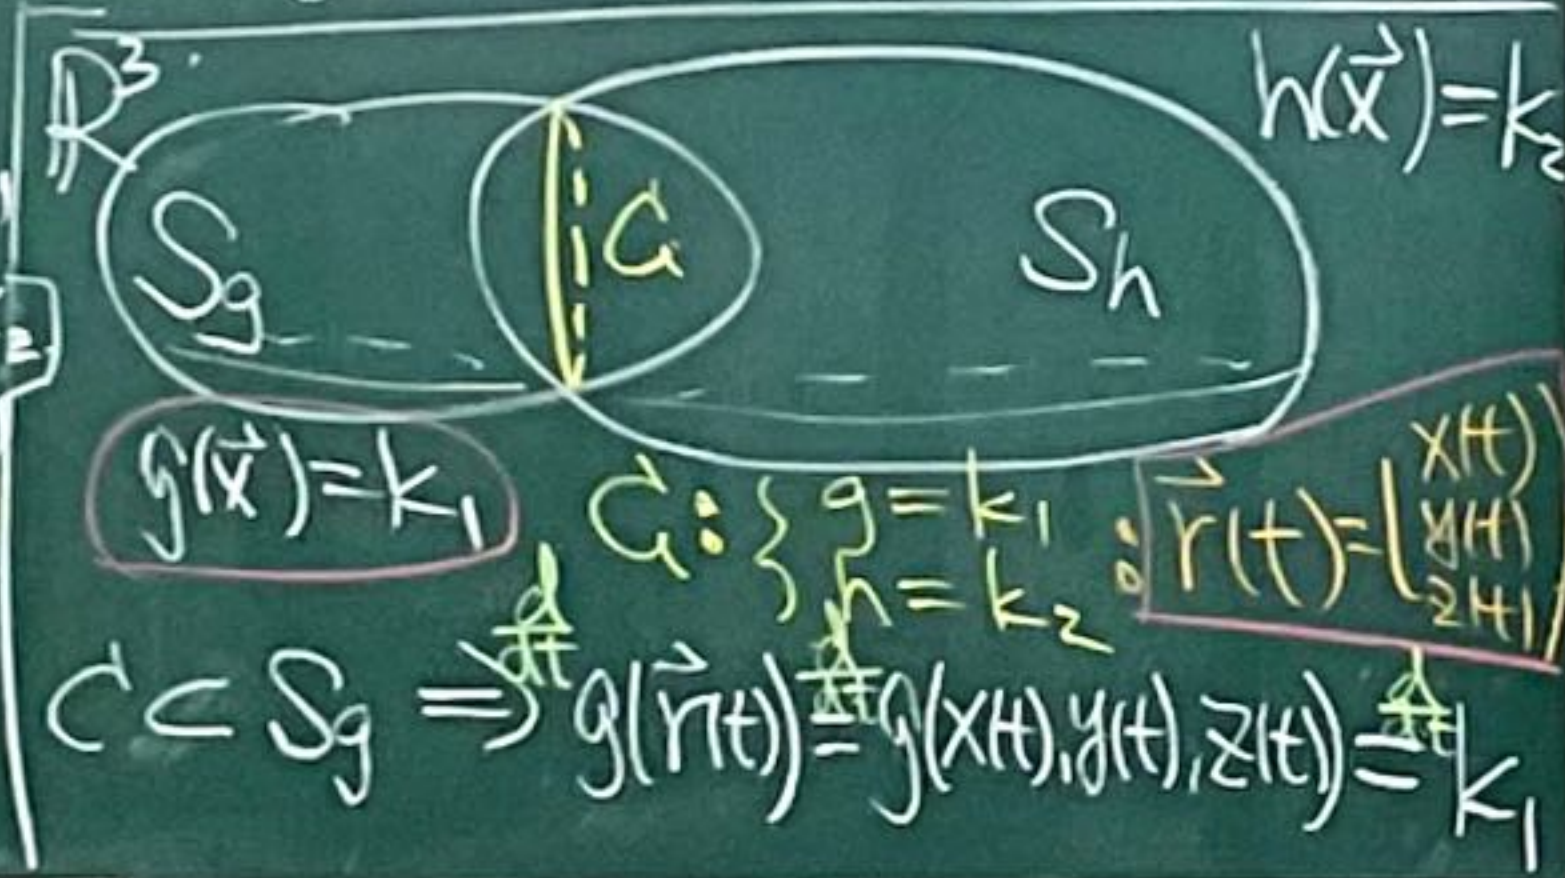 ℝ³
h(x⃗)=k₂
S_g
C
S_h
g(x⃗)=k₁
C: { g=k₁
h=k₂
: r⃗(t)=( x(t)
y(t)
z(t) )
C⊂S_g ⇒ d/dt g(r⃗(t)) = d/dt g(x(t),y(t),z(t)) = d/dt k₁